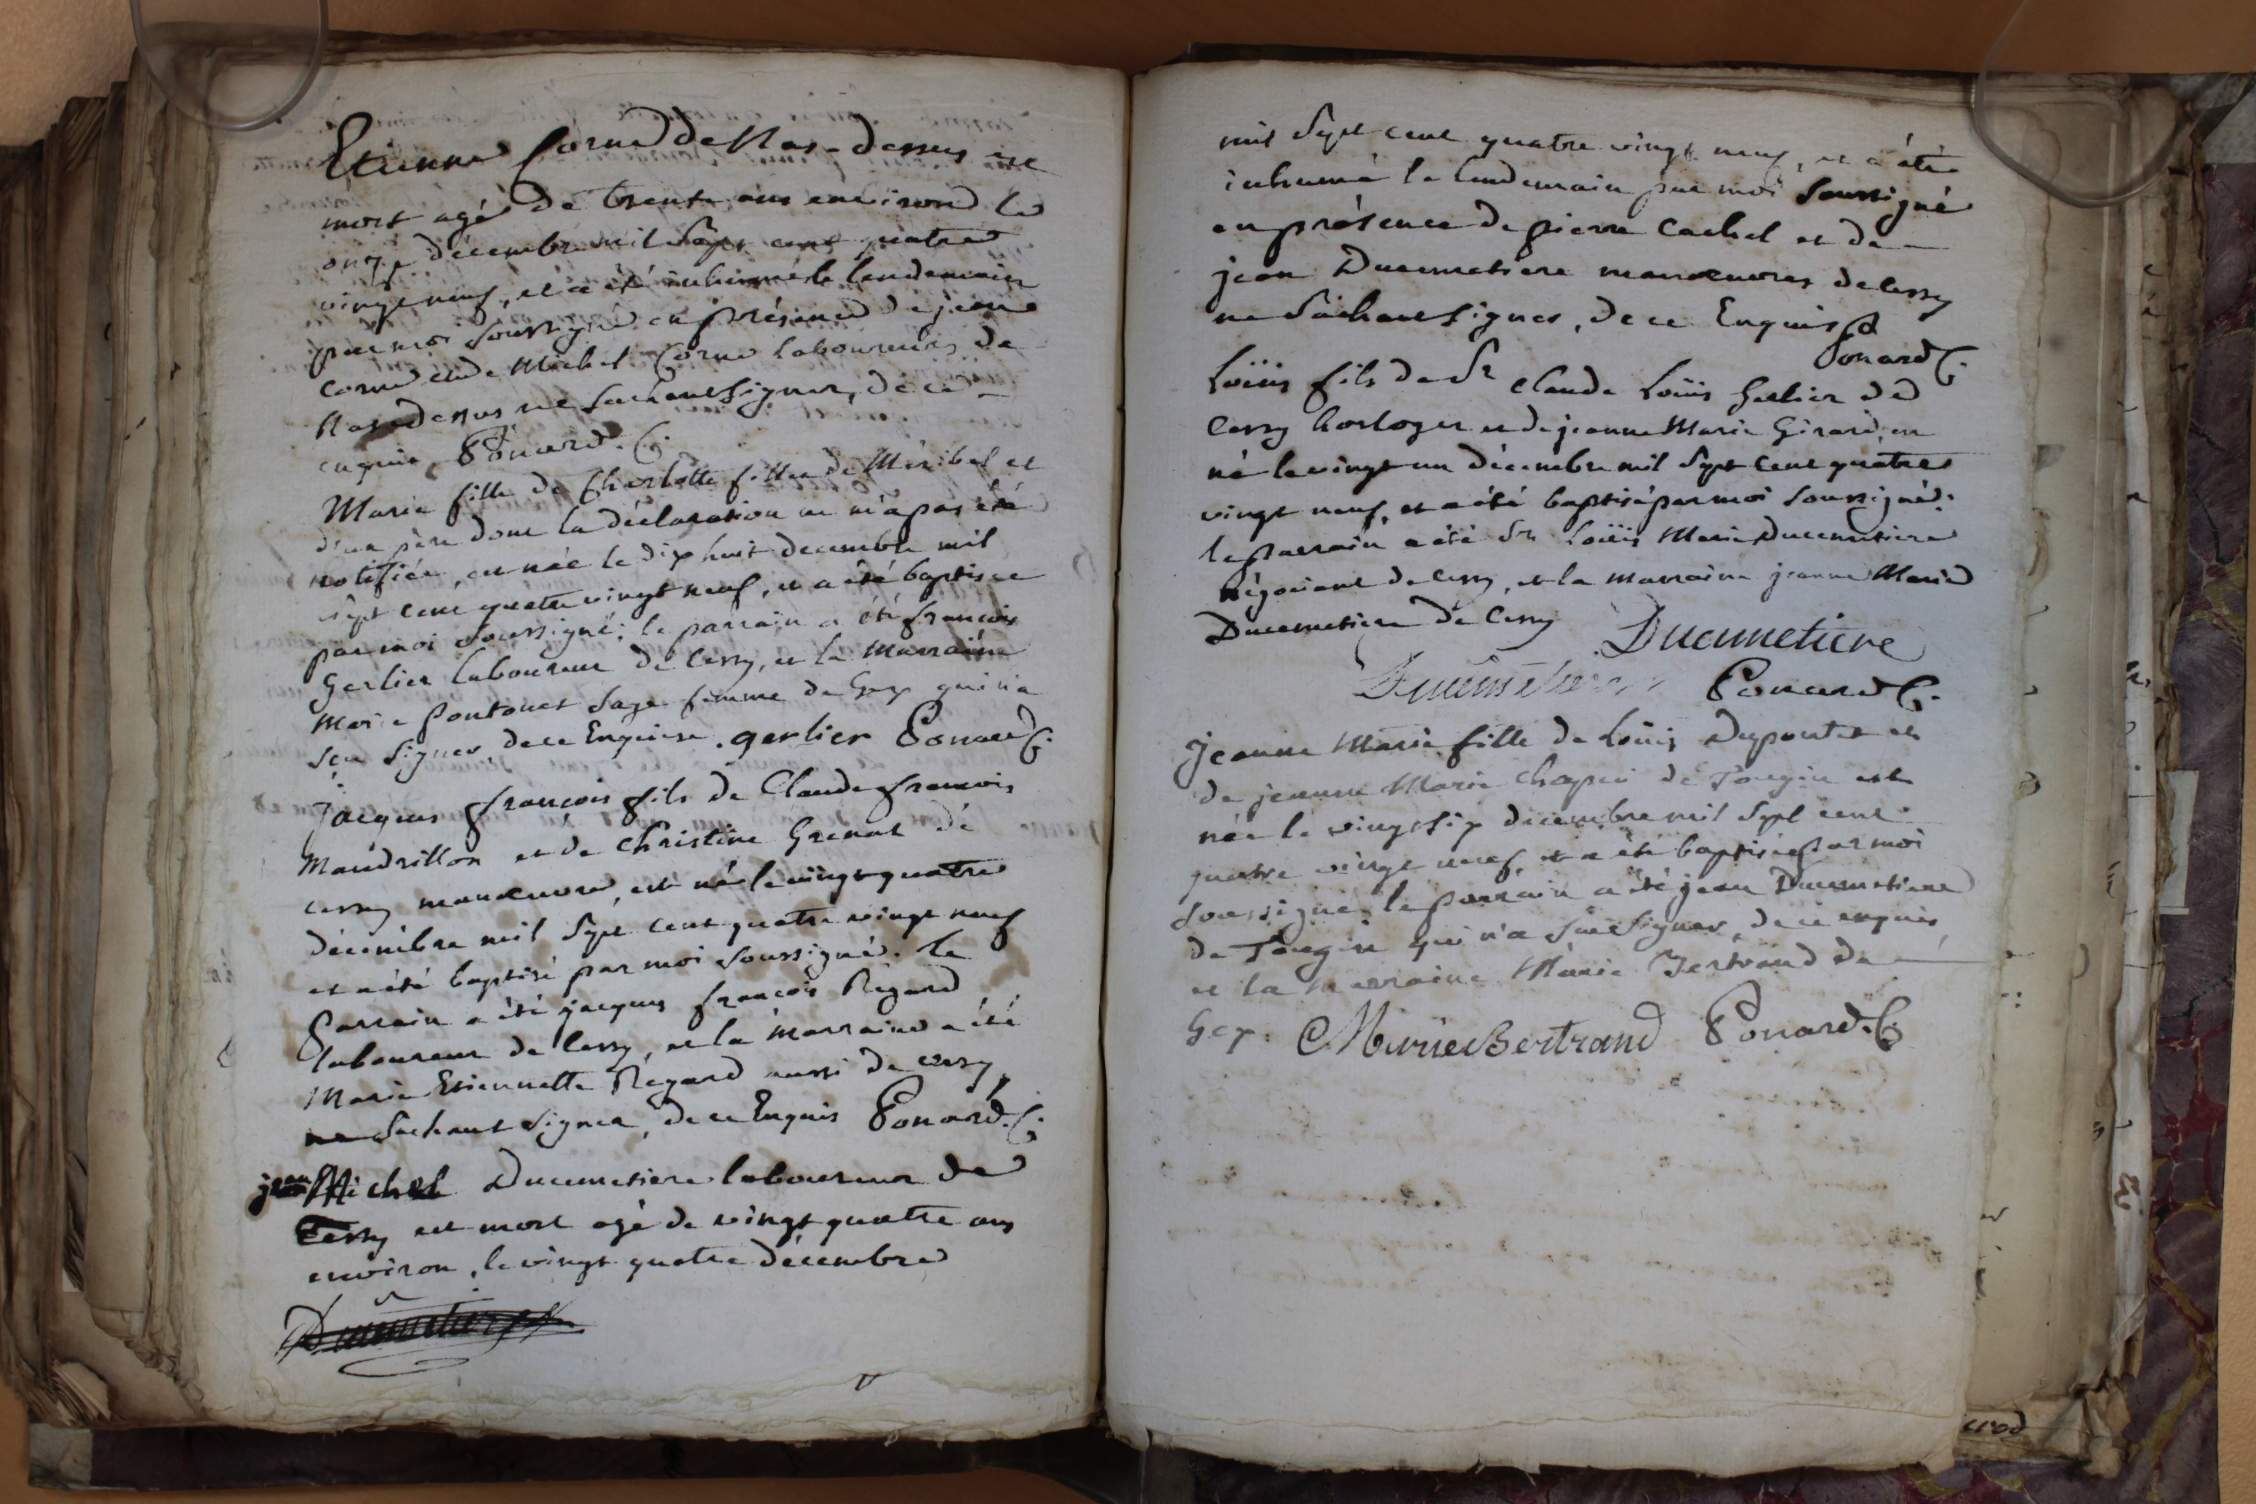 Etienne Corne de Nas-dessus est
mort agé de trente ans environ le
onze décembre mil sept cent quatre
vingt neuf, et a été inhumé le lendemain
par moi soussigné en présence de jean
corne et de Michel Corne laboureurs de
Nas dessus ne sachant signer, de ce
enquis Ponard. C.
Marie fille de Charlotte fillion de Miribel et
d'un père dont la déclaration ne m'a pas été
notifiée, est née le dix huit decembre mil
sept cent quatre vingt neuf, et a été baptisée
par moi soussigné; le parrain a été françois
Gerlier laboureur de Cessy, et la Marraine
Marie Pontouet sage femme de Gex qui n'a
sçu signer, de ce Enquise. gerlier Ponard C.
jacques françois fils de Claude françois
Mandrillon et de Christine Grenat de
cessy manœuvre, est né le vingt quatre
décembre mil sept cent quatre vingt neuf
et a été baptisé par moi soussigné. le
parrain a été jacques françois Régard
laboureur de Cessy, et la marraine a été
Marie Etiennette Régard aussi de cessy,
ne sachant signer, de ce Enquis Ponard. C.
jean Michel Ducimetiere laboureur de
Cessy est mort agé de vingt quatre ans
environ, le vingt quatre décembre
Ducimetiere
mil sept cent quatre vingt neuf, et a été
inhumé le lendemain par moi soussigné
en présence de pierre Cachet et de
jean Ducimetiere manœuvres de Cessy
ne sachant signer, de ce Enquis
Ponard C.
Loüis fils de Sr Claude Loüis Gerlier de
Cessy horloger et de jeanne Marie Girard, est
né le vingt un décembre mil sept cent quatre
vingt neuf, et a été baptisé par moi soussigné.
le parrain a été Sr Loüis Marie Ducimetiere
négociant de Cessy, et la marraine jeanne Marie
Ducimetiere de Cessy Ducimetiere
Ducimetiere Ponard C.
Jeanne Marie fille de Loüis Dupontet et
de jeanne Marie Chapui de Tougin est
née le vingt six décembre mil sept cent
quatre vingt neuf et a été baptisée par moi
soussigné; le parrain a été jean Ducimetiere
de Tougin qui n'a sçu signer, de ce enquis,
et la marraine Marie Bertrand de
Gex. Marie Bertrand Ponard. C.